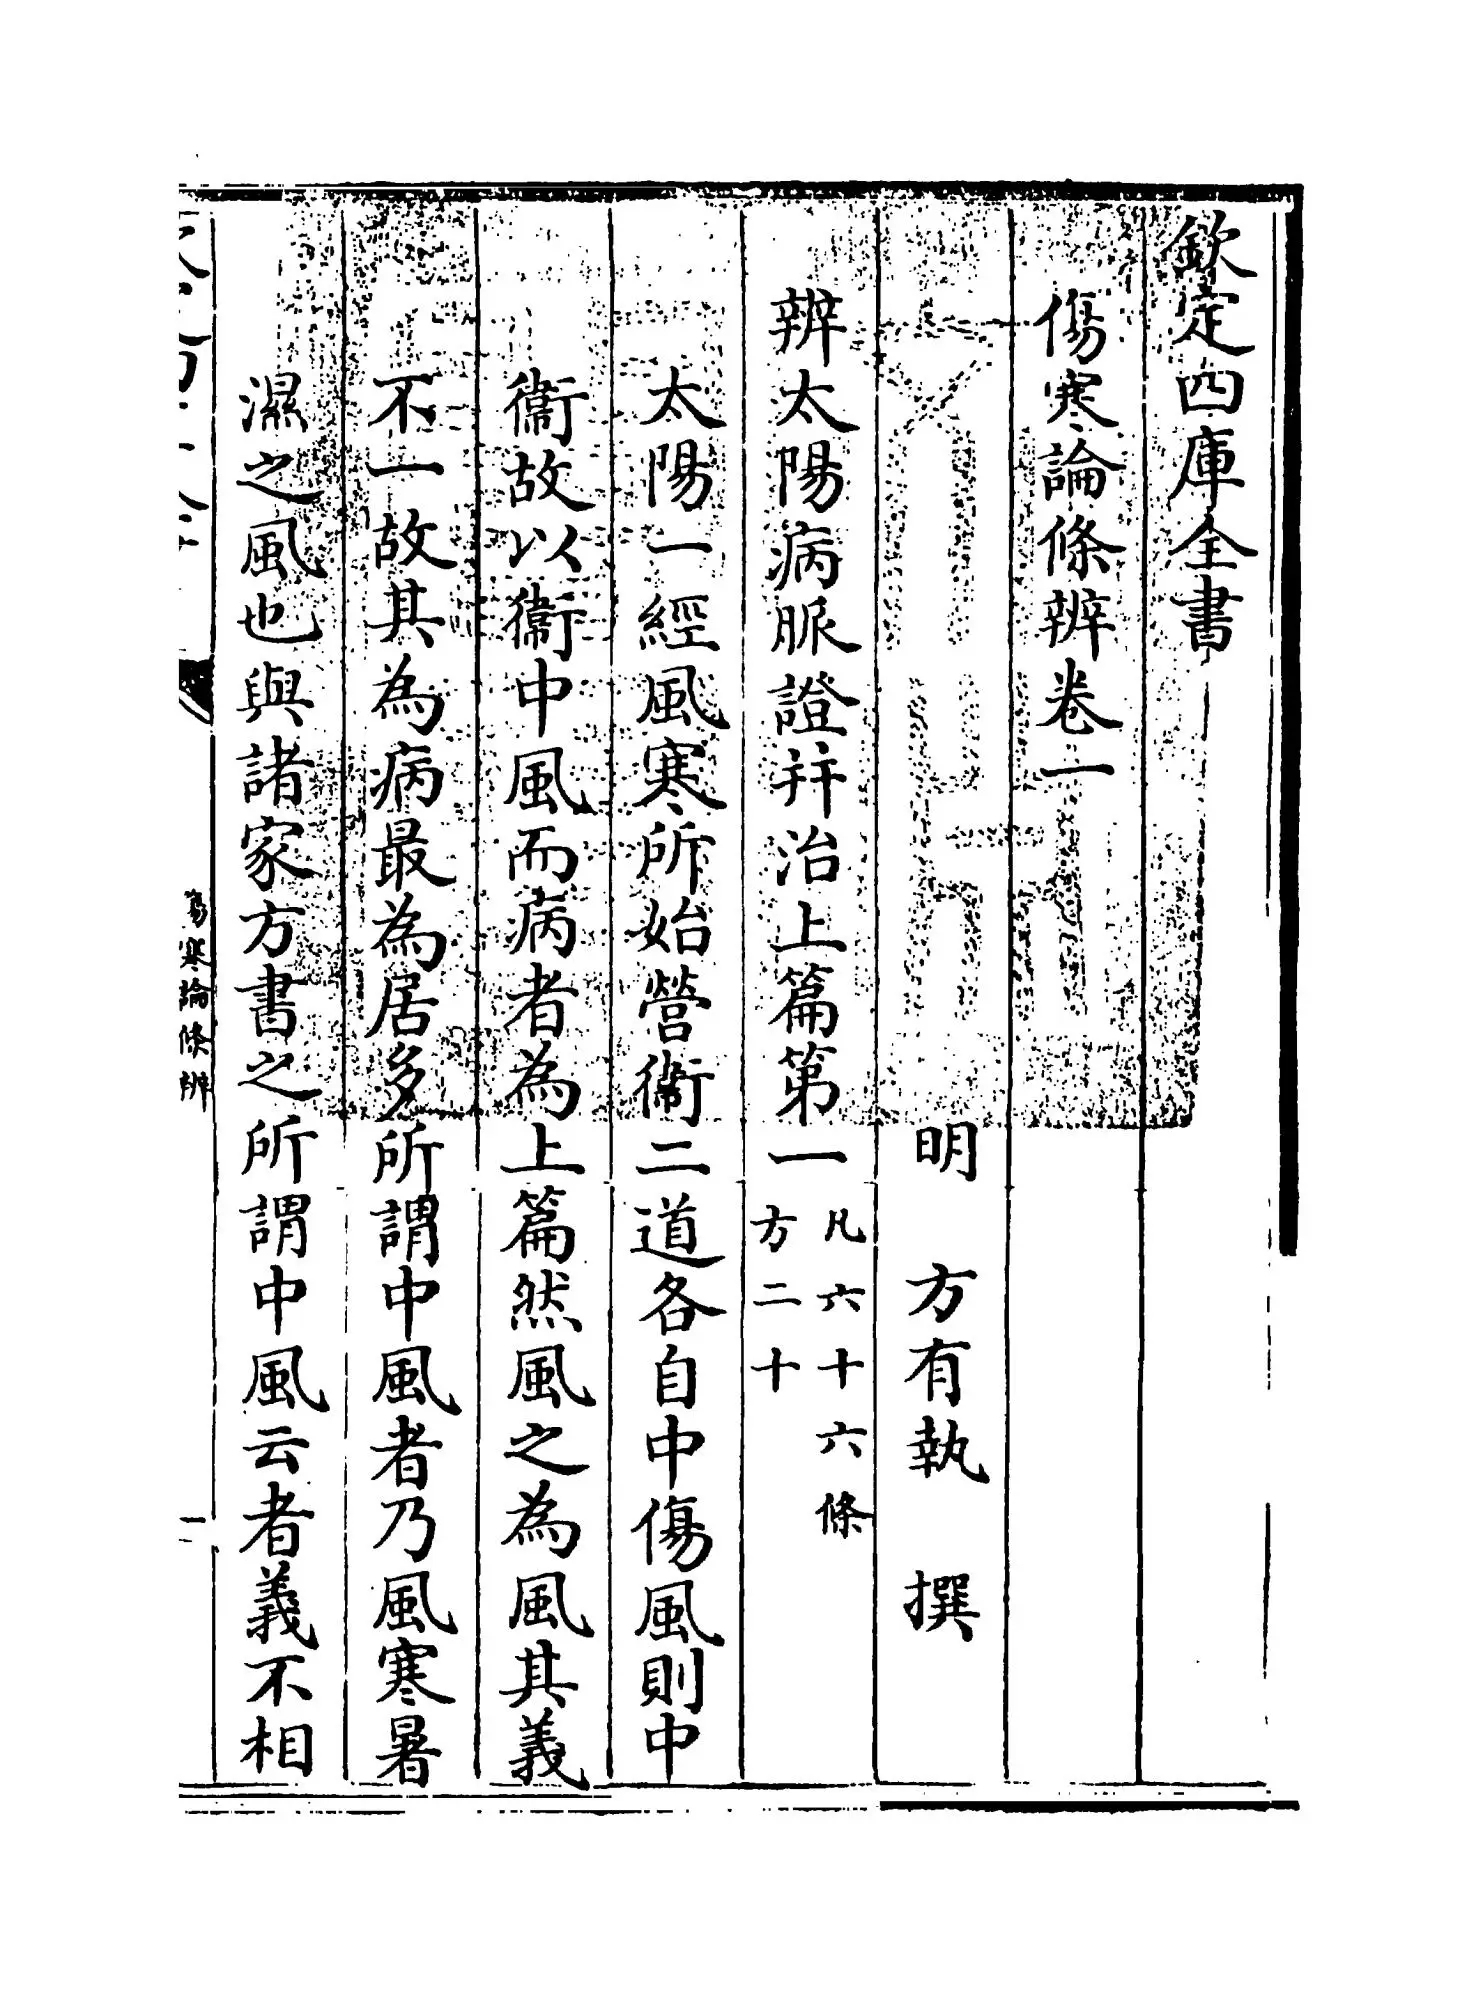 欽定四庫全書
傷寒論條辨卷一
明 方有執 撰
辨太陽病脈證并治上篇第一 凡六十六條
方二十
太陽一經風寒所始營衛二道各自中傷風則中
衞故以衞中風而病者為上篇然風之為風其義
不一故其為病最為居多所謂中風者乃風寒暑
濕之風也與諸家方書之所謂中風云者義不相
傷寒論條辨
一